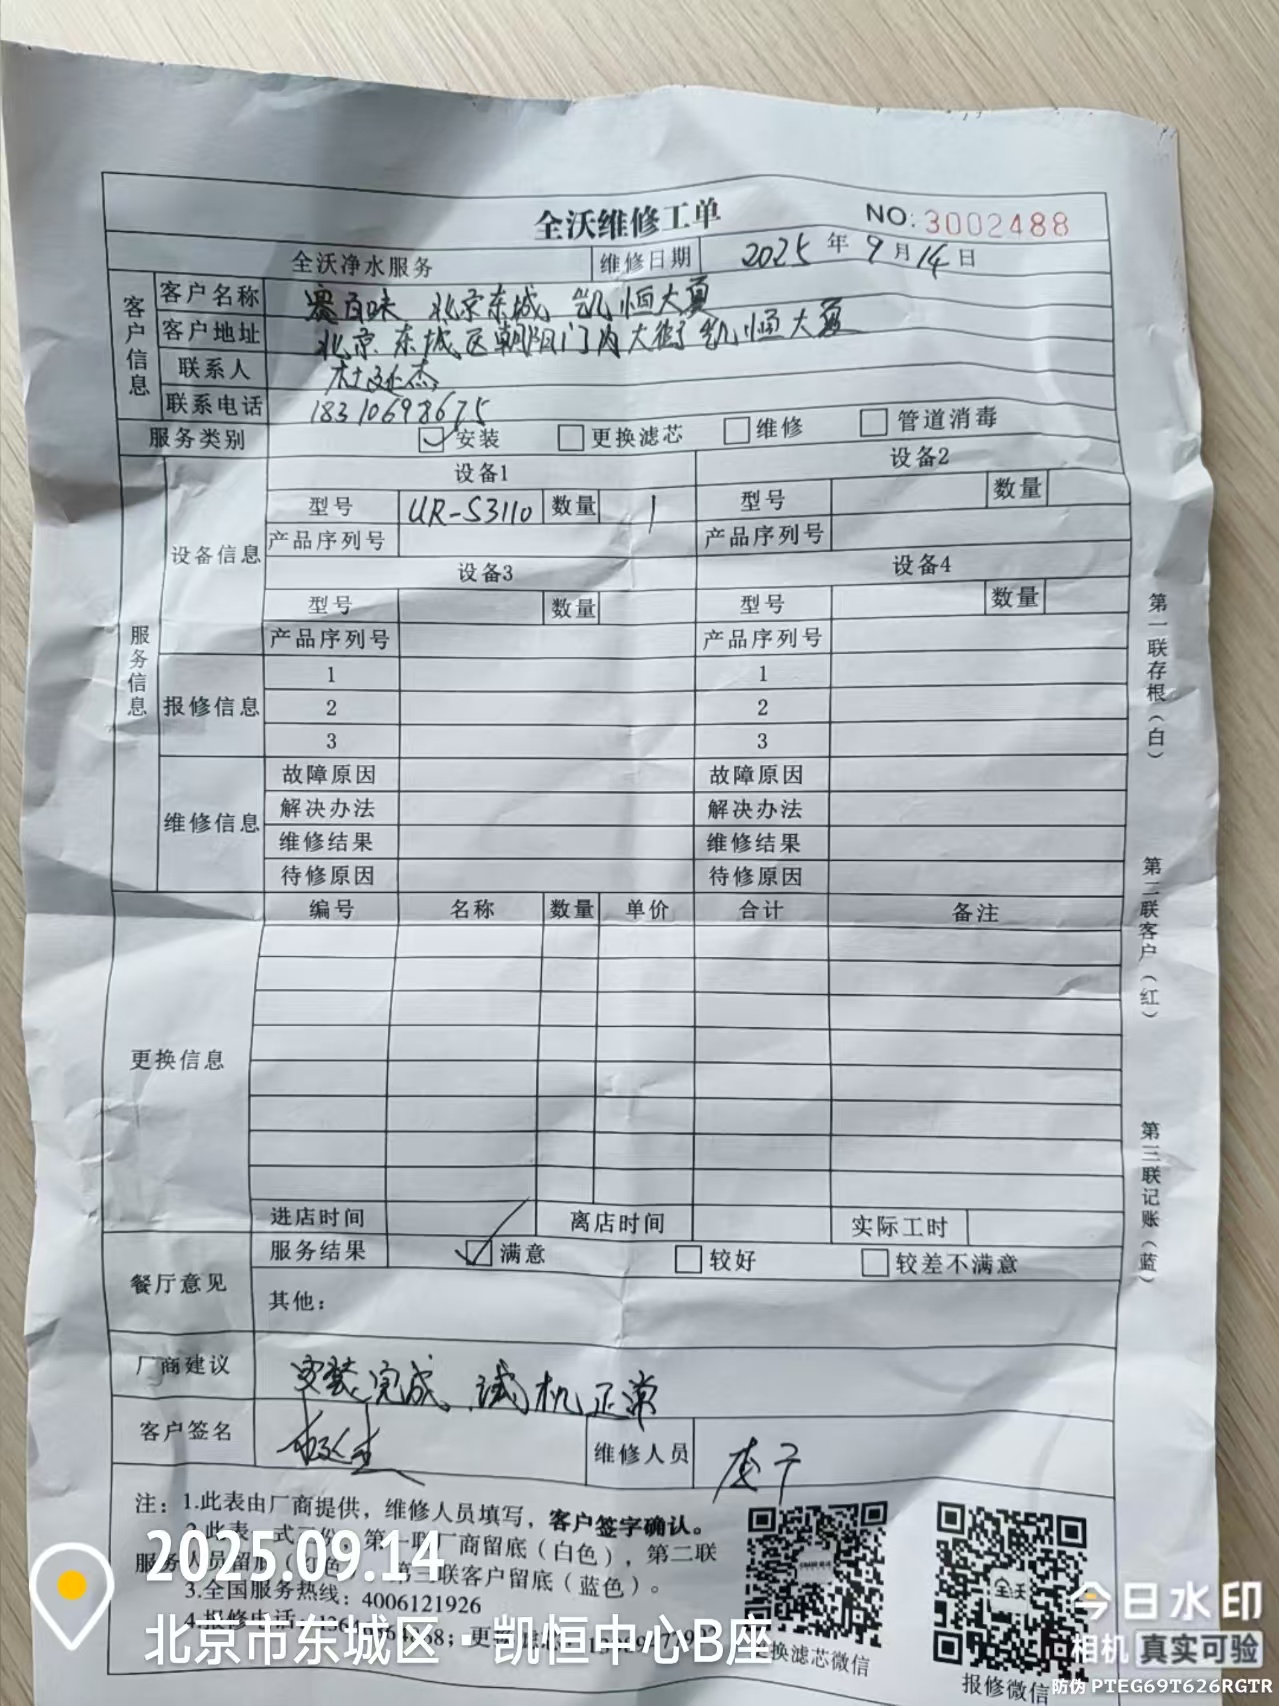 全沃维修工单
NO: 3002488
全沃净水服务 维修日期 2025 年 9 月 14 日
客户信息
客户名称 赛百味 北京东城 凯恒大夏
客户地址 北京东城区朝阳门内大街凯恒大夏
联系人
联系电话 18310698675
服务类别 安装 更换滤芯 维修 管道消毒
服务信息
设备信息
设备1 设备2
型号 UR-S3110 数量 1 型号 数量
产品序列号 产品序列号
设备3 设备4
型号 数量 型号 数量
产品序列号 产品序列号
报修信息
1 1
2 2
3 3
维修信息
故障原因 故障原因
解决办法 解决办法
维修结果 维修结果
待修原因 待修原因
更换信息
编号 名称 数量 单价 合计 备注
进店时间 离店时间 实际工时
餐厅意见
服务结果 满意 较好 较差不满意
其他：
厂商建议 安装完成 试机正常
客户签名 维修人员
第一联存根（白）
第二联客户（红）
第三联记账（蓝）
注：1.此表由厂商提供，维修人员填写，客户签字确认。
2.此表一式三份，第一联厂商留底（白色），第二联
服务人员留底（红色），第三联客户留底（蓝色）。
3.全国服务热线：4006121926
4.报修电话
更换滤芯微信
报修微信
2025.09.14
北京市东城区·凯恒中心B座
今日水印
相机 真实可验
防伪 PTEG69T626RGTR